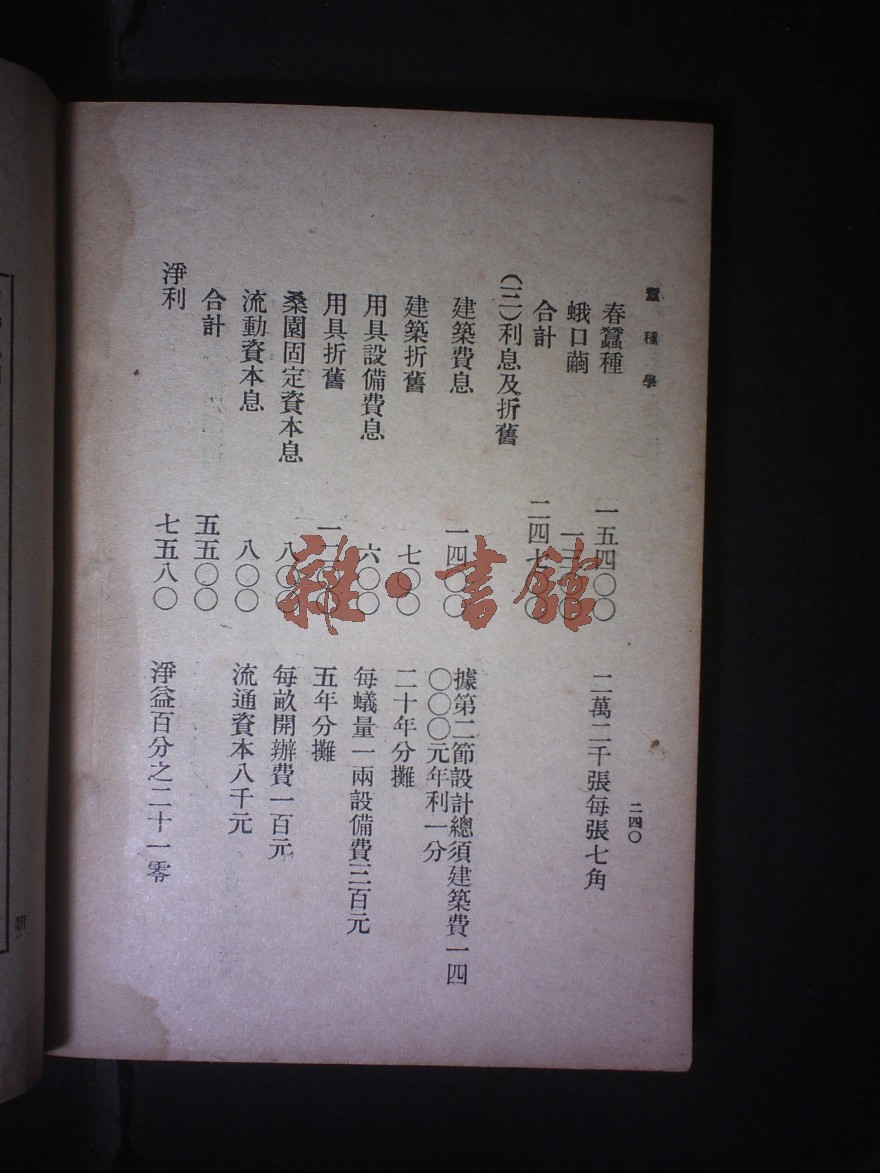 蠶種學
二四〇
春蠶種 一五四〇〇 二萬二千張每張七角
蛾口繭
合計
(三)利息及折舊
建築費息 一四〇〇 據第二節設計總須建築費一四
〇〇〇元年利一分
建築折舊 七〇〇 二十年分攤
用具設備費息 六〇〇 每蟻量一兩設備費三百元
用具折舊 一二〇〇 五年分攤
桑園固定資本息 八〇〇 每畝開辦費一百元
流動資本息 八〇〇 流通資本八千元
合計 五五〇〇
淨利 七五八〇 淨益百分之二十一零
雜·書館